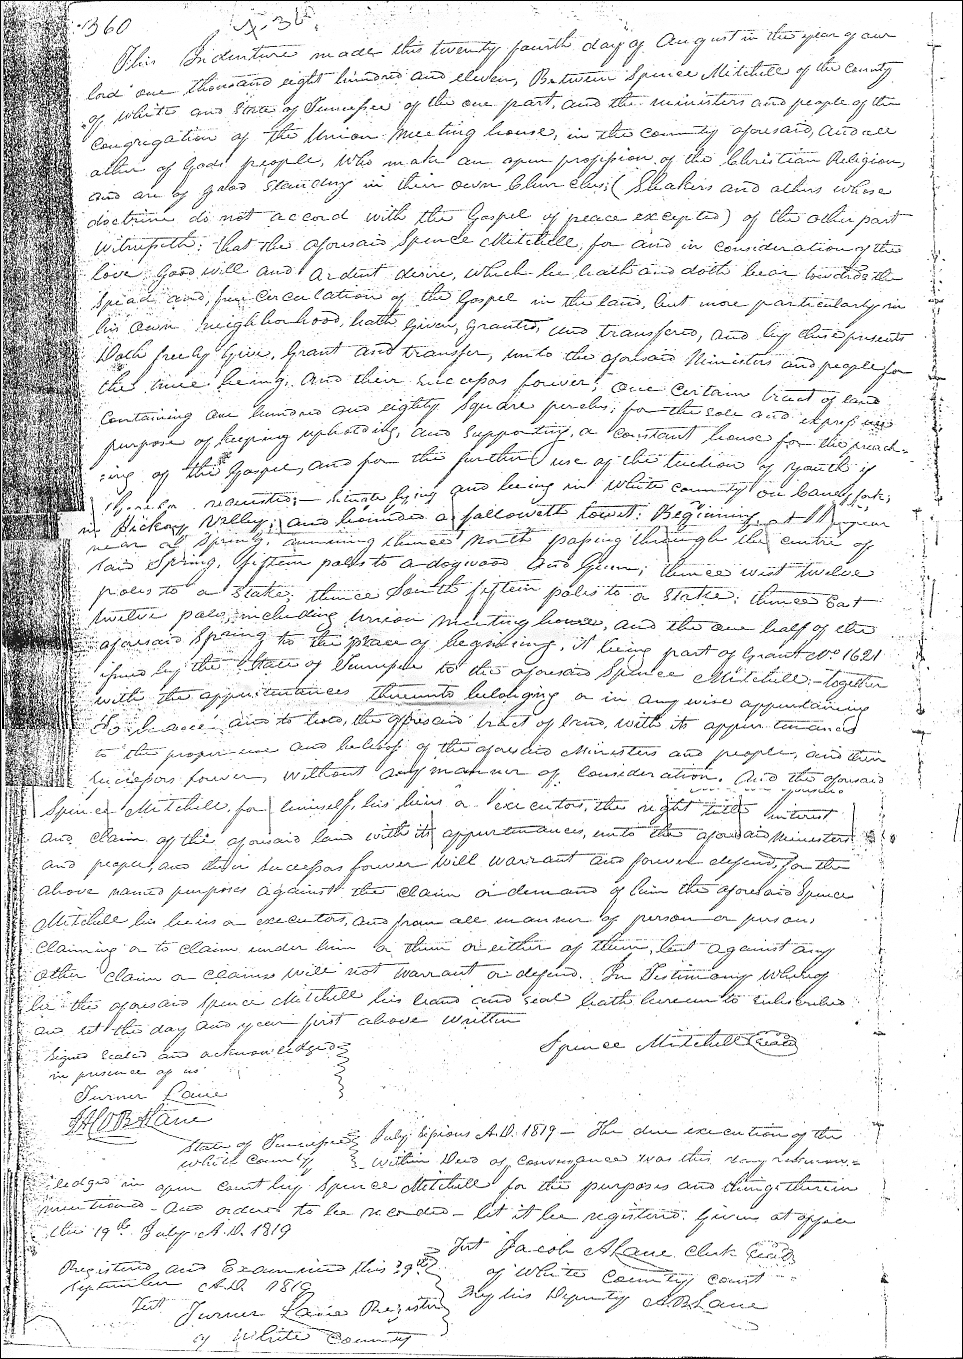 360
This Indenture made this twenty fourth day of August in the year of our
lord one thousand eight hundred and eleven, Between Spence Mitchell of the County
of White and State of Tennessee of the one part, and the ministers and people of the
Congregation of the Union Meeting house, in the County aforesaid, and all
other of Gods people, who make an open profession of the Christian Religion,
and are of good standing in their own Churches; (Shakers and others whose
doctrine do not accord with the Gospel of peace excepted) of the other part
Witnesseth: that the aforesaid Spence Mitchell, for and in consideration of the
love, good will and ardent desire, which he hath and doth bear towards the
spread and, free circulation of the Gospel in the land, but more particularly in
his own neighborhood, hath Given, granted, and transfered, and by these presents
Doth freely Give, Grant and transfer, unto the aforesaid Ministers and people for
the time being, and their successors forever; One certain tract of land
Containing one hundred and eighty Square perches; for the sole and express use
purpose of keeping upholding, and supporting, a constant house for the preach-
ing of the Gospel, and for the further use of the tuition of youth if
required; situate lying and being in White County on Caney fork,
in Hickory Valley; and bounded as followeth towit: Beginning at
near a Spring, running thence North passing through the centre of
said Spring, fifteen poles to a dogwood and Gum; thence west twelve
poles to a Stake; thence South fifteen poles to a Stake; thence East
twelve poles, including Union meeting house, and the one half of the
aforesaid Spring to the place of beginning, it being part of Grant No 1621
issued by the State of Tennessee to the aforesaid Spence Mitchell;-together
with the appurtenances thereunto belonging or in any wise appertaining
To have and to hold, the aforesaid tract of land, with its appurtenances
to the proper use and behoof of the aforesaid Ministers and people, and their
successors forever, without any manner of consideration. And the aforesaid
Spence Mitchell, for himself, his heirs or executors, the right title interest
and claim of the aforesaid land with its appurtenances, unto the aforesaid Ministers
and people, and their successors forever will warrant and forever defend, for the
above named purposes against the claim or demand of him the aforesaid Spence
Mitchell his heirs or executors, and from all manner of person or persons,
claiming or to claim under him or them or either of them, but against any
other claim or claims will not warrant or defend. In Testimony whereof
he the aforesaid Spence Mitchell his hand and seal hath hereunto subscribed
and set the day and year first above written
Spence Mitchell Seal
Signed Sealed and acknowledged
in presence of us
Turner Lane
Jacob A Lane
State of Tennessee July Sessions A.D. 1819 - The due execution of the
White County within Deed of Conveyance was this day acknow-
ledged in open court by Spence Mitchell for the purposes and things therein
mentioned - And ordered to be recorded - let it be registered. Given at office
this 19th July A.D. 1819
Test Jacob A Lane Clerk Seal
of White County Court
By his Deputy A B Lane
Registered and Examined this 29th
September A.D. 1819
Test
Turner Lane Register
of White County